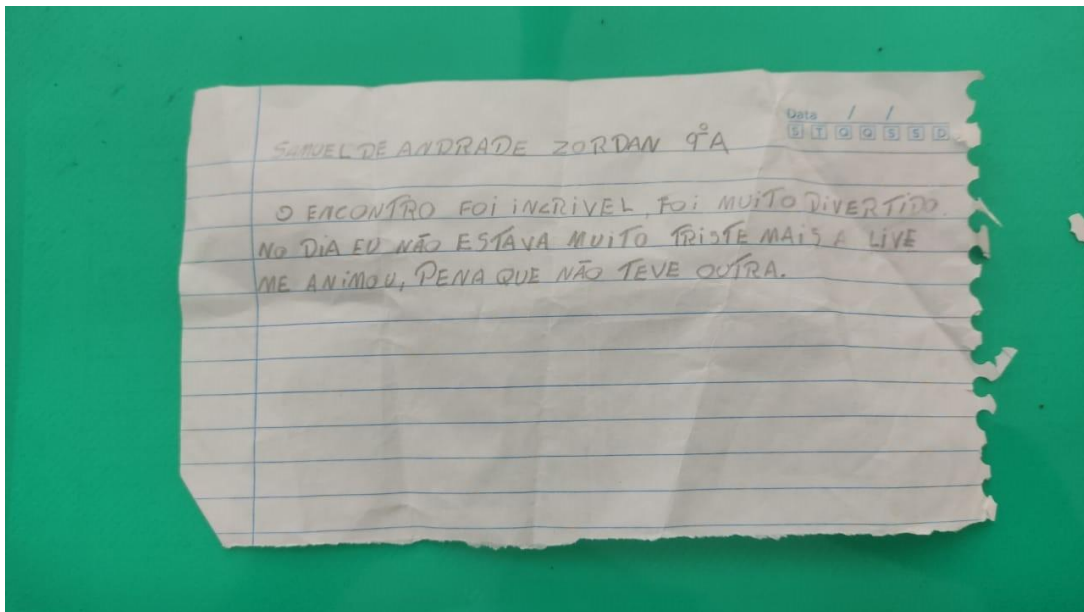 Data / /
S T Q Q S S D
SAMUEL DE ANDRADE ZORDAN 9ºA
O ENCONTRO FOI INCRIVEL, FOI MUITO DIVERTIDO.
NO DIA EU NÃO ESTAVA MUITO TRISTE MAIS A LIVE
ME ANIMOU, PENA QUE NÃO TEVE OUTRA.